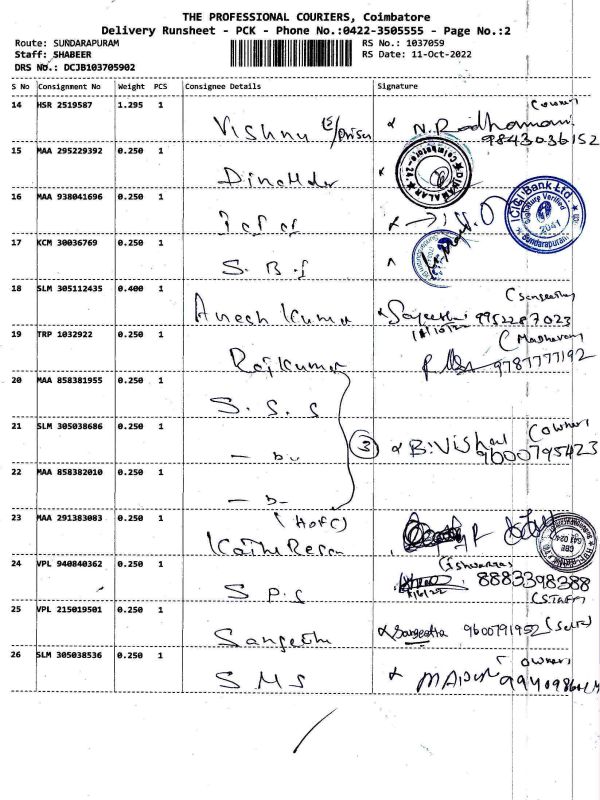 THE PROFESSIONAL COURIERS, Coimbatore
Delivery Runsheet - PCK - Phone No.:0422-3505555 - Page No.:2
Route: SUNDARAPURAM
RS No.: 1037059
Staff: SHABEER
RS Date: 11-Oct-2022
DRS No.: DCJB103705902
S No Consignment No Weight PCS Consignee Details Signature
14 HSR 2519587 1.295 1 Vishnu N. Radhamani (owner
9843036152
15 MAA 295229392 0.250 1
16 MAA 938041696 0.250 1
ICICI Bank Ltd
Signature Verified
2041
Sundarapuram
17 KCM 30036769 0.250 1 S. B. I
18 SLM 305112435 0.400 1 Anesh Kumar (Sangeetha
9952287023
19 TRP 1032922 0.250 1 Rajkumar (Madhavan
9787777192
20 MAA 858381955 0.250 1 S. S. S
21 SLM 305038686 0.250 1 3 B. Vishal (owner
9600795423
22 MAA 858382010 0.250 1
23 MAA 291383083 0.250 1
24 VPL 940840362 0.250 1 S P. S 8883398388
(STAFF)
25 VPL 215019501 0.250 1 Sangeetha Sangeetha 9600791952 (Self)
26 SLM 305038536 0.250 1 S M S owner